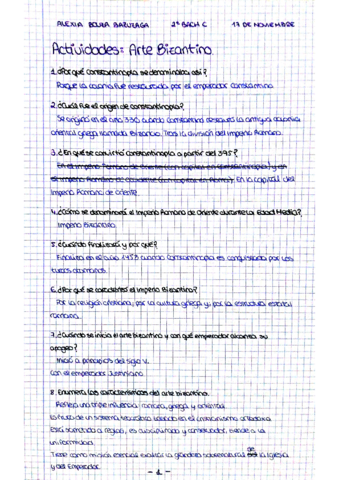 ALEXIA 2º BACH C 17 DE NOVIEMBRE
Actividades: Arte Bizantino.
1. ¿Por qué Constantinopla se denominaba así?
Porque la colonia fue restaurada por el emperador Constantino
2. ¿Cuál fue el origen de Constantinopla?
Se originó en el año 330 cuando Constantino la antigua colonia
oriental griega llamada Bizancio. Tras la división del Imperio Romano.
3. ¿En qué se convirtió Constantinopla a partir del 395?
En el Imperio Romano de Oriente (con capital en Constantinopla) y en
el Imperio Romano de Occidente (con capital en Roma). En la capital del
Imperio Romano de Oriente.
4. ¿Cómo se denominará el Imperio Romano de Oriente durante la Edad Media?
Imperio Bizantino.
5. ¿Cuándo finalizará y por qué?
Finaliza en el año 1453 cuando Constantinopla es conquistada por los
turcos otomanos.
6. ¿Por qué se caracteriza el Imperio Bizantino?
Por la religión cristiana, por la cultura griega y por la estructura estatal
romana.
7. ¿Cuándo se inicia el arte bizantino y con qué emperador alcanza su
apogeo?
Inició a principios del siglo V.
Con el emperador Justiniano
8. Enumera las características del arte bizantino.
Refleja una triple influencia: romana, griega y oriental.
Es fruto de un sistema teocrático basado en el cristianismo ortodoxo
Está sometido a reglas, es disciplinado y conservador, tiende a la
uniformidad.
Tiene como misión esencial exaltar la grandeza sobrenatural de la Iglesia
y del Emperador.
- 1 -